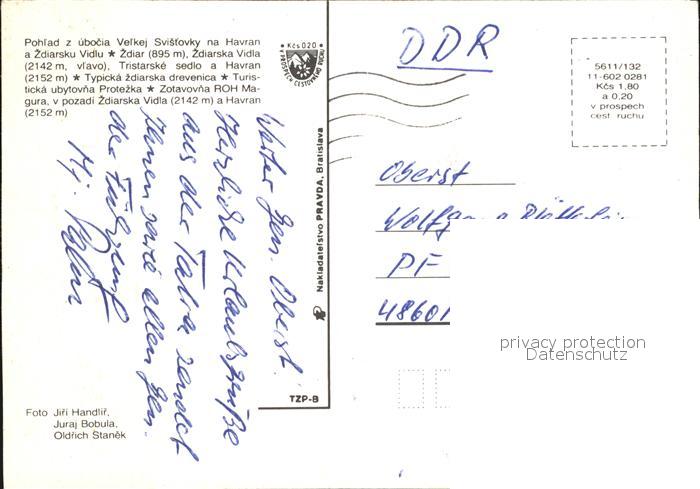 Pohľad z úbočia Veľkej Svišťovky na Havran
a Ždiarsku Vidlu ★ Ždiar (895 m), Ždiarska Vidla
(2142 m, vľavo), Tristarské sedlo a Havran
(2152 m) ★ Typická ždiarska drevenica ★ Turis-
tická ubytovňa Protežka ★ Zotavovňa ROH Ma-
gura, v pozadí Ždiarska Vidla (2142 m) a Havran
(2152 m)
Kčs 0,20
V PROSPECH CESTOVNÉHO RUCHU
DDR
5611/132
11-602 0281
Kčs 1,80
a 0,20
v prospech
cest. ruchu
Werter Gen. Oberst!
Herzliche Urlaubsgrüße
aus der Tatra sendet
Ihnen sowie allen Gen.
der
Mj.
Oberst
PF
48601
Nakladateľstvo PRAVDA, Bratislava
TZP-B
Foto Jiří Handlíř,
Juraj Bobula,
Oldřich Staněk
privacy protection
Datenschutz